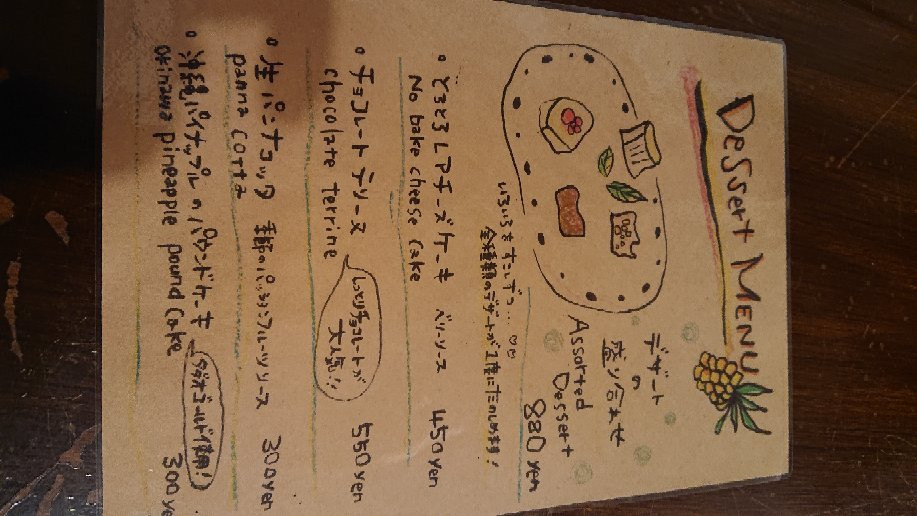 Dessert MENU
デザート
の
盛り合わせ
Assorted
Dessert
880 yen
いろいろをすこしずつ...
全種類のデザートが1度にたのしめます!
• どろどろレアチーズケーキ ベリーソース 450 yen
No bake cheese cake
• チョコレートテリーヌ 550 yen
chocolate terrine
しっとりチョコレートが
大人気!
• 生パンナコッタ 季節のパッションフルーツソース 300 yen
panna cotta
• 沖縄パイナップルのパウンドケーキ 300 ye
okinawa pineapple pound cake
ゴールド使用!